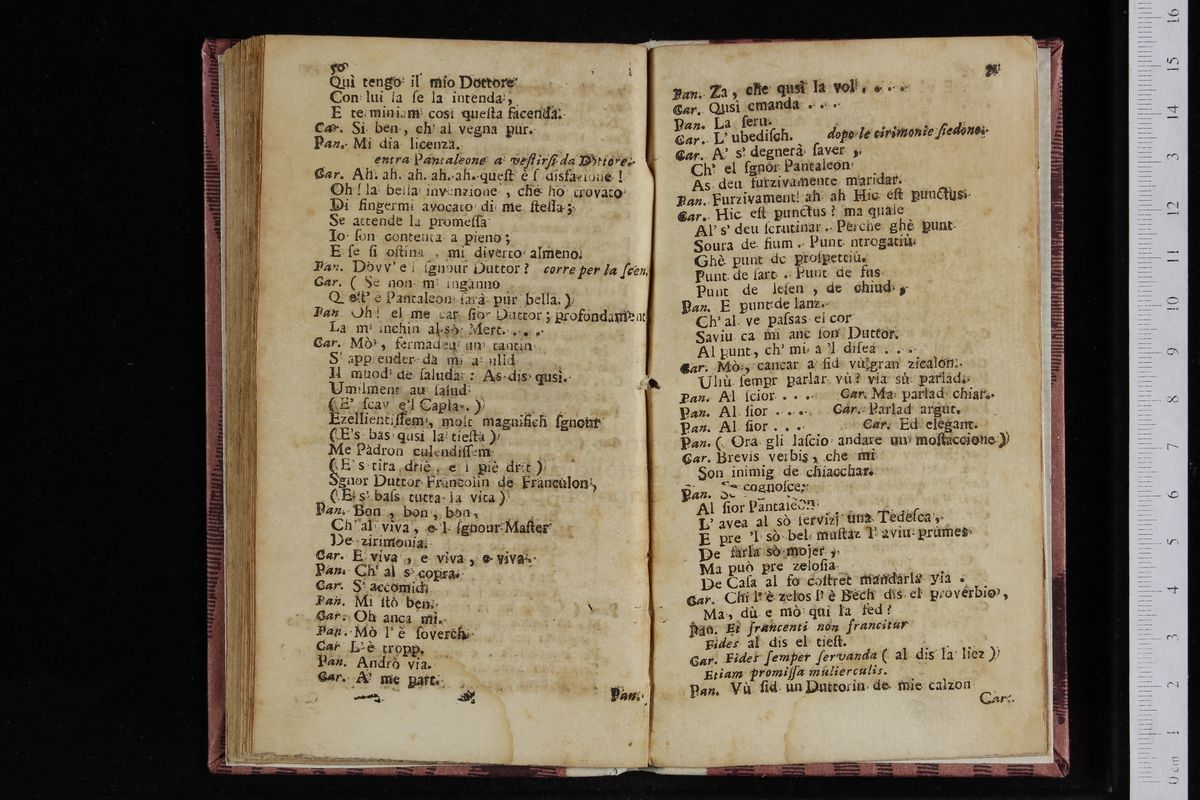 50
Quì tengo il mio Dottore
Con lui la se la intenda,
E terminiam così questa facenda.
Car. Si ben, ch' al vegna pur.
Pan. Mi dia licenza.
entra Pantaleone a vestirsi da Dottore.
Car. Ah. ah. ah. ah. ah. quest è
Oh! la bella invenzione, che ho trovato
Di fingermi avocato di me stessa;
Se attende la promessa
Io son contenta a pieno;
E se si ostina, mi diverto almeno.
Pan. Dovv' e l sgnour Duttor? corre per la scen.
Car. (Se non m' inganno
Quest' è Pantaleon sarà pur bella.)
Pan. Oh! el me car sior Duttor; profondament
La m' inchin al sò Mert. . . .
Car. Mò, fermadeu un tantin
S' apprender da mi a
Il muod de saludar: As dis qusì.
Umilment au salud
(E' scav e'l Capla.)
Ezellientissem, molt magnifich sgnour
(E's bas qusi la tiesta)
Me Padron culendissem
(E's tira driè, e i piè drit)
Sgnor Duttor Francolin de Francùlon,
(E s' bass tutta la vita)
Pan. Bon, bon, bon,
Ch' al viva, e l sgnour Master
De zirimonia.
Car. E viva, e viva, e viva.
Pan. Ch' al s copra.
Car. S' accomidi
Pan. Mi stò ben.
Car. Oh anca mi.
Pan. Mò l' è soverch.
Car L' è tropp.
Pan. Andrò via.
Car. A' me part.
Pan.
Pan. Za, che qusì la vol. . . .
Car. Qusì cmanda . . .
Pan. La seru.
Car. L' ubedisch. dopo le cirimonie siedono.
Car. A' s' degnerà saver,
Ch' el sgnor Pantaleon
As deu furzivamente maridar.
Pan. Furzivament! ah ah Hic est punctus.
Car. Hic est punctus? ma quale
Al' s' deu scrutinar. Perche ghè punt
Soura de fium. Punt ntrogatiù.
Ghè punt de prospettiù.
Punt de sart. Punt de fus
Punt de lesen, de chiud,
Pan. E punt de lanz.
Ch' al ve passas el cor
Saviu ca mi anc son Duttor.
Al punt, ch' mi a 'l disea . . .
Car. Mò, cancar a sid vù gran zicalon.
Uliù sempr parlar vù? via sù parlad.
Pan. Al scior . . . Car. Ma parlad chiar.
Pan. Al sior . . . Car. Parlad argut.
Pan. Al sior . . . Car. Ed elegant.
Pan. (Ora gli lascio andare un mostaccione)
Car. Brevis verbis, che mi
Son inimig de chiacchar.
Pan. Se cognosce,
Al sior Pantaleon
L' avea al sò servizj una Tedesca,
E pre 'l sò bel mustaz l' aviu prumes
De farla sò mojer,
Ma può pre zelosia
De Casa al fo costret mandarla via.
Car. Chi l' è zelos l' è Bech dis el proverbio,
Ma, dù e mò qui la fed?
Pan. Et francenti non francitur
Fides al dis el tiest.
Car. Fides semper servanda (al dis la liez)
Etiam promissa mulierculis.
Pan. Vù sid un Duttorin de mie calzon
Car.
0 cm 1 2 3 4 5 6 7 8 9 10 11 12 13 14 15 16